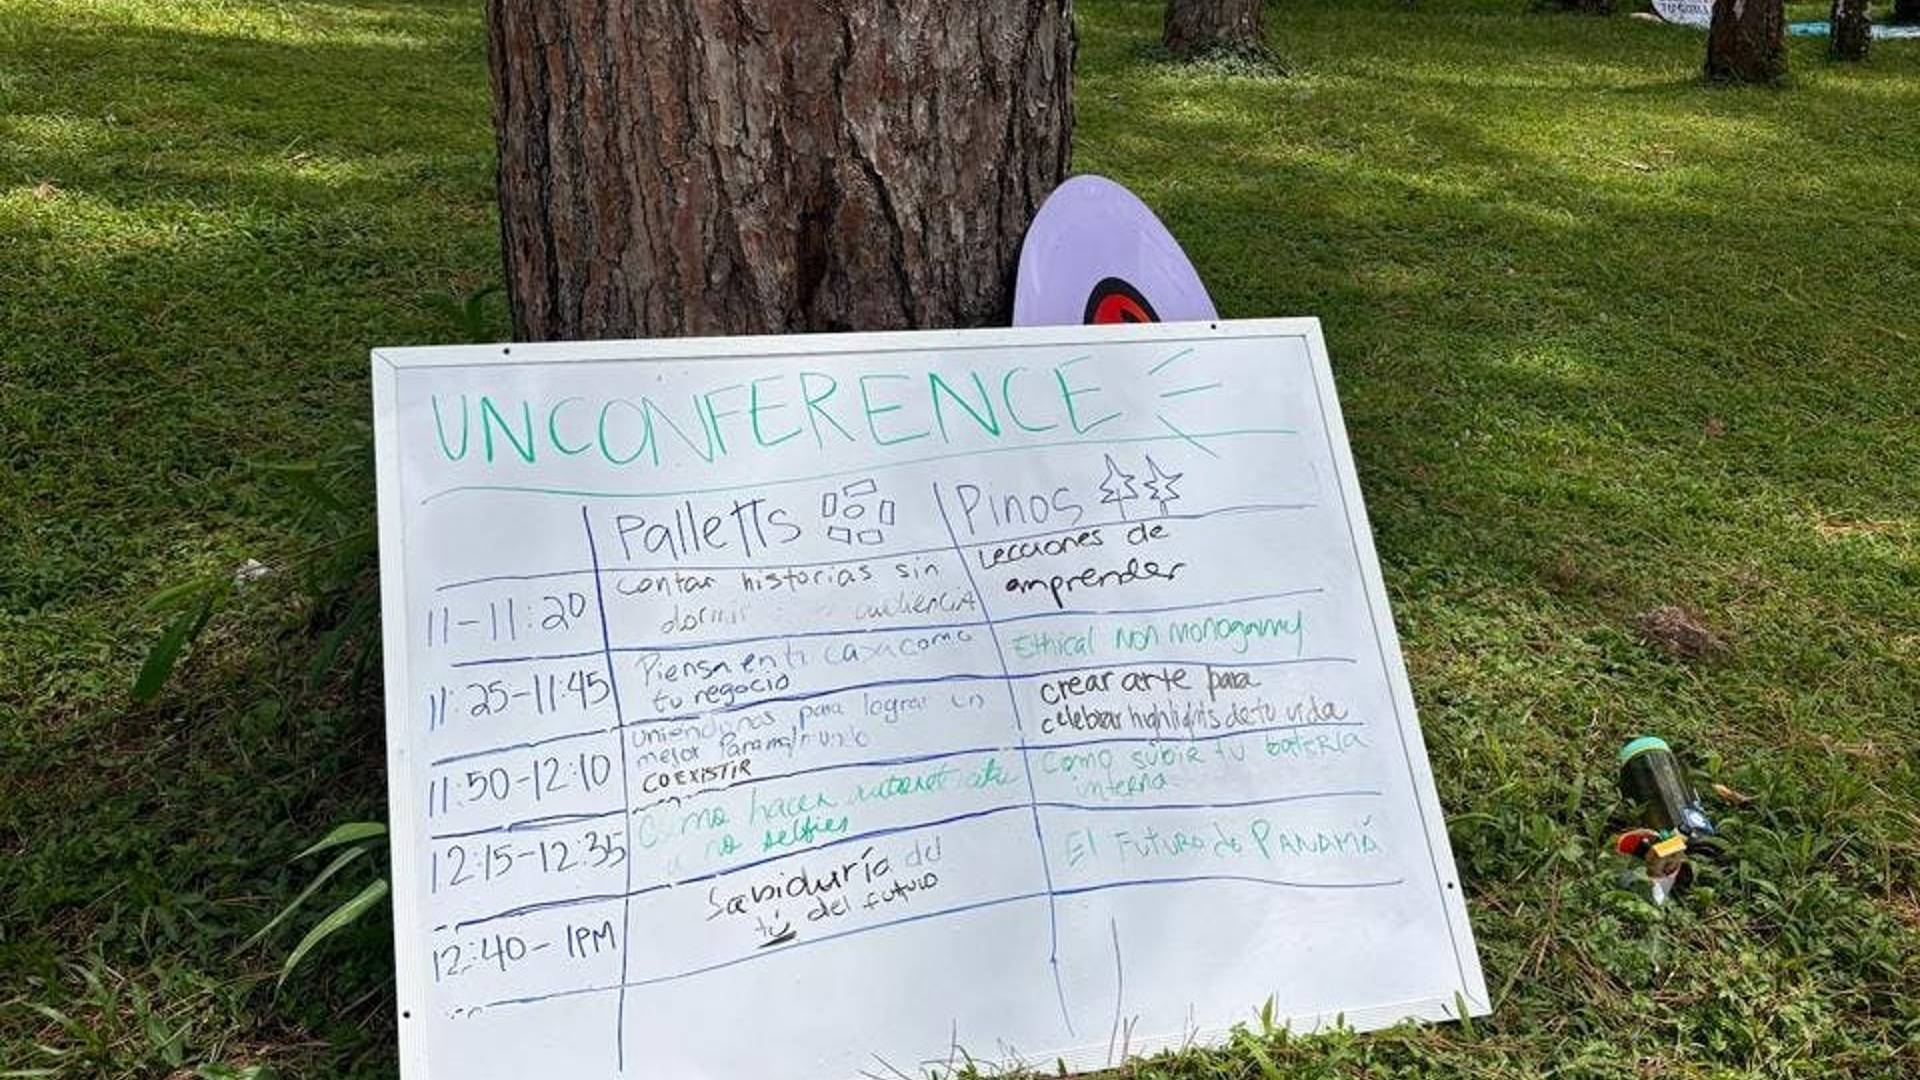 UNCONFERENCE
Palletts
Pinos
11-11:20
contar historias sin
dormir audiencia
Lecciones de
emprender
11:25-11:45
Piensa en tu casa como
tu negocio
Ethical Non monogamy
11:50-12:10
uniendonos para lograr un
mejor Panama/mundo
COEXISTIR
crear arte para
celebrar highlights de tu vida
12:15-12:35
Como hacer autoretratos
y no selfies
Como subir tu batería
interna
12:40-1PM
Sabiduría del
tú del futuro
El Futuro de PANAMÁ